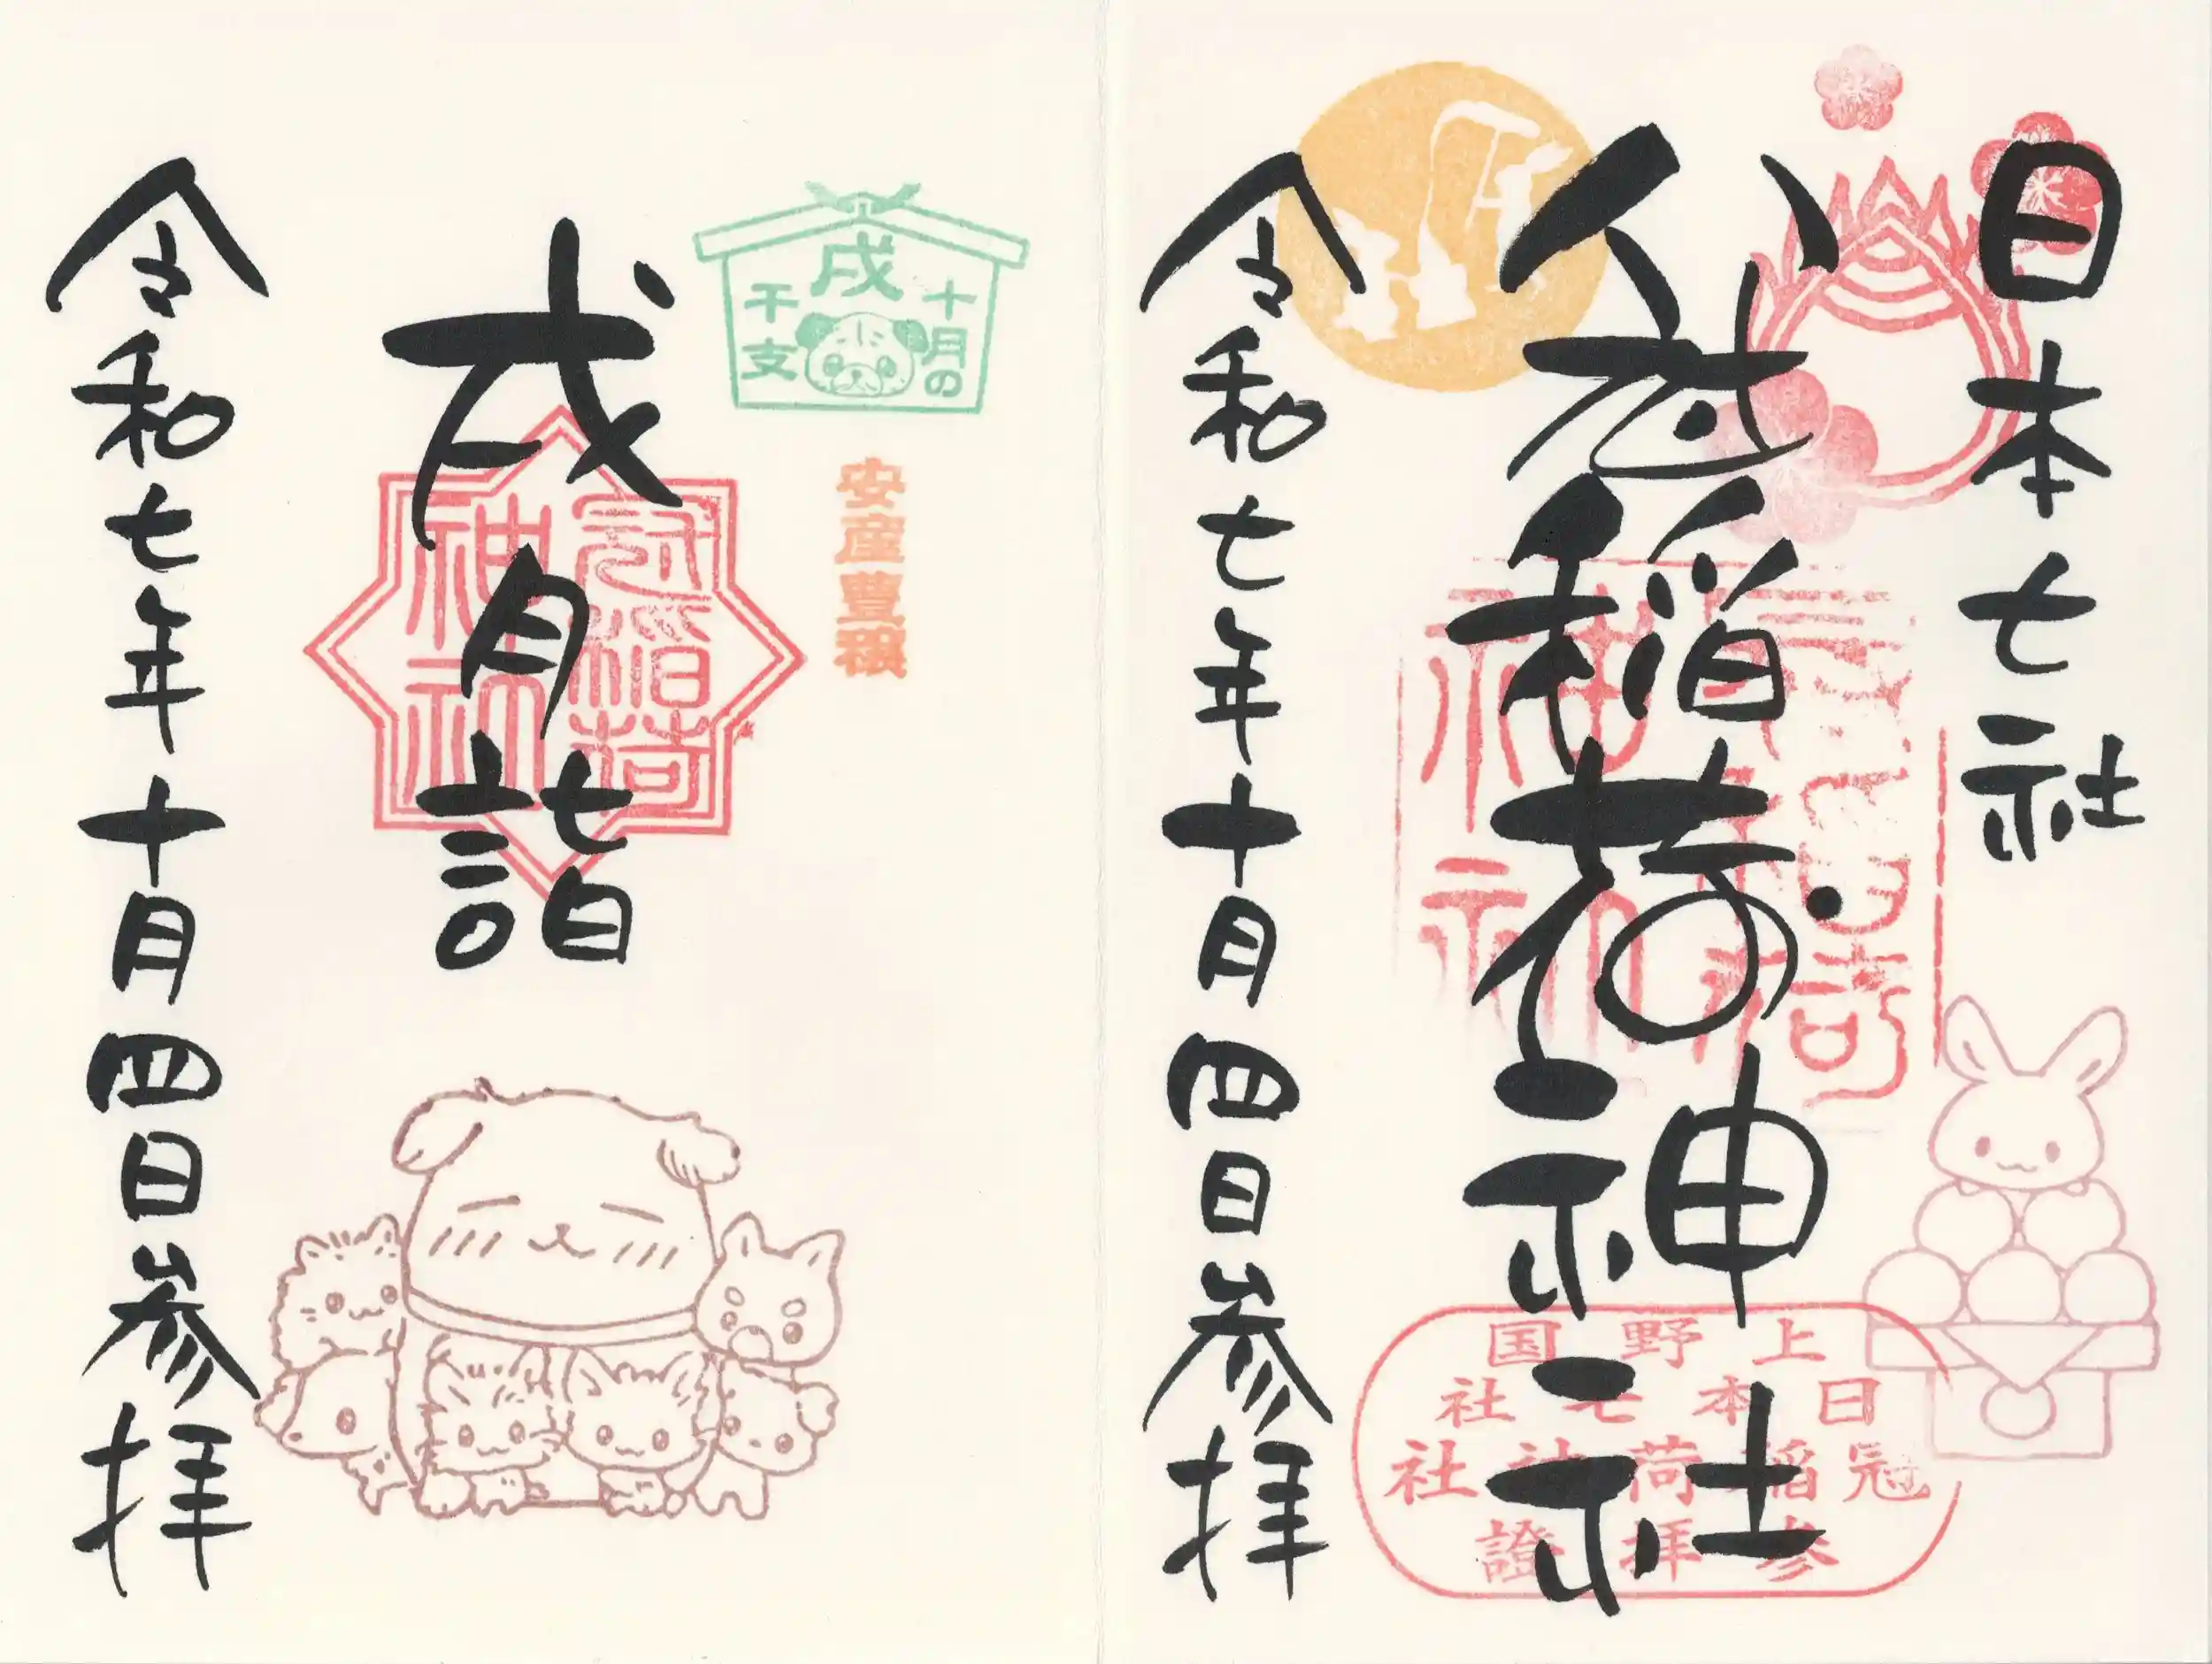 日本七社
稲荷神社
令和七年十月四日参拝
上野国
日本七社
冠稲荷神社
参拝證
十月の
戌
干支
安産豊穣
戌月詣
冠稲荷
神社
令和七年十月四日参拝